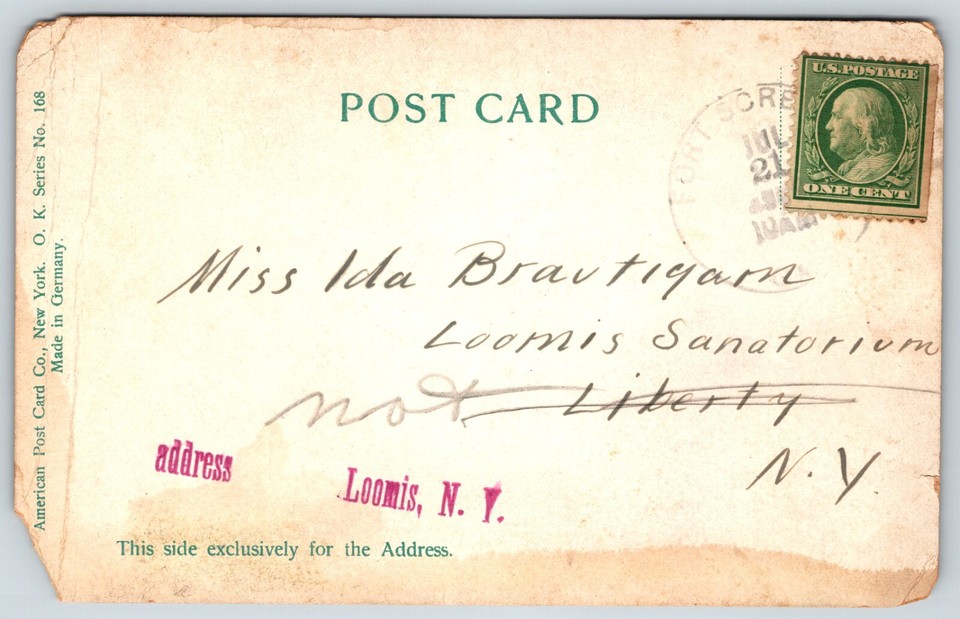 POST CARD
U.S. POSTAGE
ONE CENT
FORT SCRE
JUL
21
10AM
Miss Ida Brautigam
Loomis Sanatorium
not Liberty
N.Y.
address
Loomis, N. Y.
This side exclusively for the Address.
American Post Card Co., New York. O. K. Series No. 168
Made in Germany.